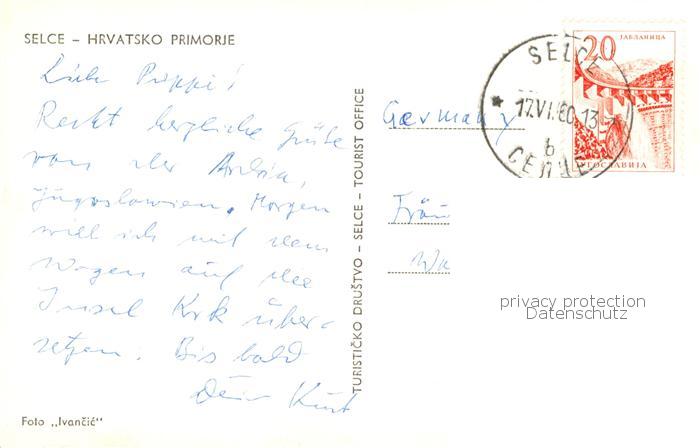 SELCE – HRVATSKO PRIMORJE
Liebe Puppi!
Recht herzliche Grüße
von der Adria,
Jugoslawien. Morgen
will ich mit dem
Wagen auf die
Insel Krk über-
setzen. Bis bald
Dein Kurt
Foto „Ivančić“
TURISTIČKO DRUŠTVO – SELCE – TOURIST OFFICE
20 ЈАБЛАНИЦА
ЈУГОСЛАВИЈА
SELCE
17.VI.60.13
b
СЕЛЦЕ
Germany
Fräu
Wu
privacy protection
Datenschutz